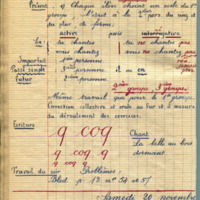 Présent : 9 Chaque élève choisit un verbe du 1er
groupe. L'écrit à la 2e pers du sing et
du plur de forme :
active puis interrogative
tu chantes tu ne chantes pas
vous chantez vous ne chantez pas
Imparfait personne
Passé simple 3ème personne il ou on
Futur personne
2ème groupe 3ème groupe
Même travail que pour le 1er groupe.
Correction collective et orale au fur et à mesure
du déroulement des exercices.
Ecriture
q coq
q coq
q coq q
Chant
La belle au bois
dormant
Travail du soir Problèmes
Blot p 13 nos 54 et 57
Samedi 20 novembre